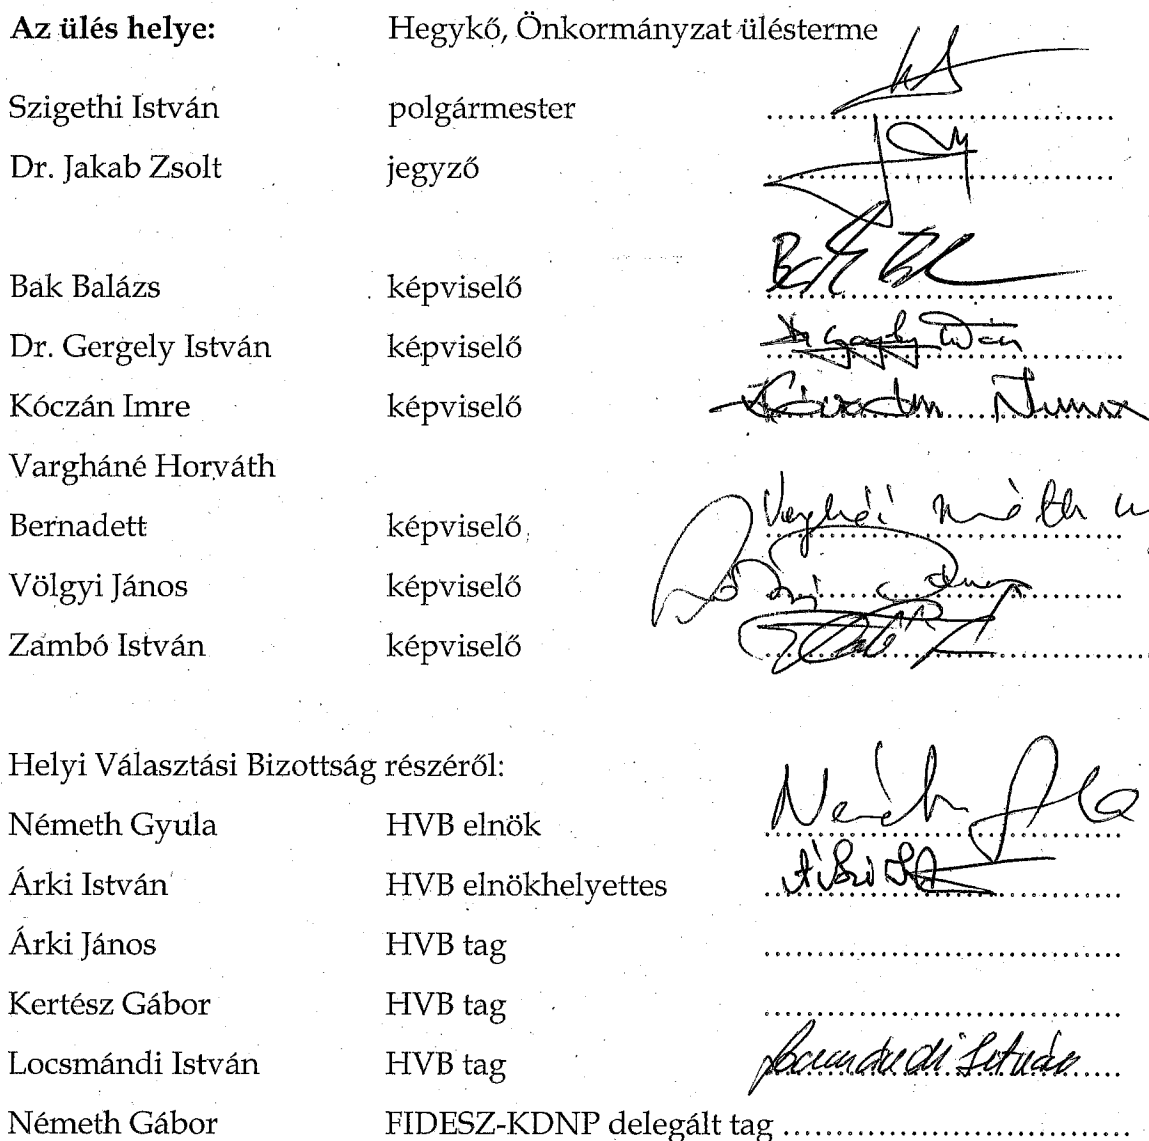 Az ülés helye: Hegykő, Önkormányzat ülésterme
Szigethi István polgármester ........................................
Dr. Jakab Zsolt jegyző ........................................
Bak Balázs képviselő ........................................
Dr. Gergely István képviselő ........................................
Kóczán Imre képviselő ........................................
Vargháné Horváth
Bernadett képviselő ........................................
Völgyi János képviselő ........................................
Zambó István képviselő ........................................
Helyi Választási Bizottság részéről:
Németh Gyula HVB elnök ........................................
Árki István HVB elnökhelyettes ........................................
Árki János HVB tag ........................................
Kertész Gábor HVB tag ........................................
Locsmándi István HVB tag Locsmándi István
Németh Gábor FIDESZ-KDNP delegált tag ........................................